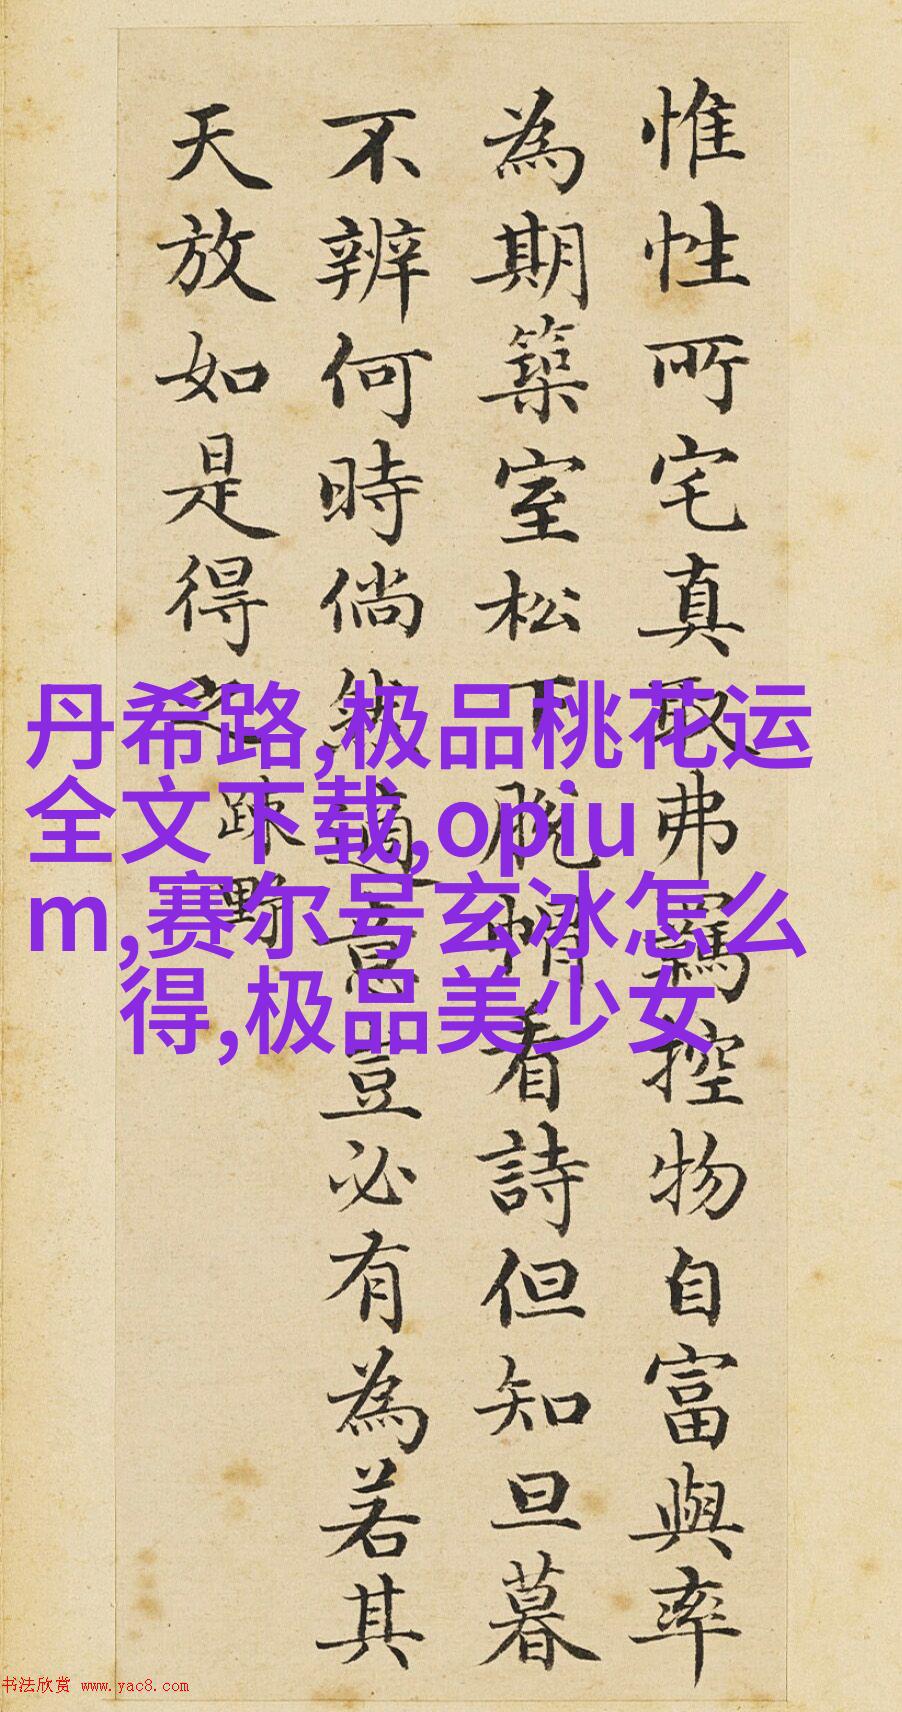 惟性所宅真取弗羈控物自富與率
為期築室松下脫帽看詩但知旦暮
不辨何時倘然適意豈必有為若其
天放如是得之
疎野
丹希路,极品桃花运
全文下载,opiu
m,赛尔号玄冰怎么
得,极品美少女
书法欣赏 www.yac8.com